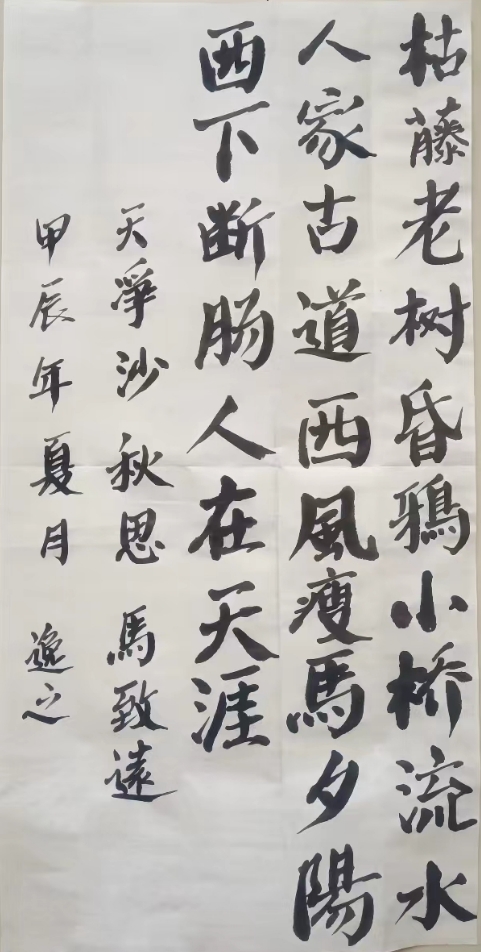 枯藤老树昏鴉小桥流水
人家古道西風瘦馬夕陽
西下断肠人在天涯
天淨沙秋思 馬致遠
甲辰年夏月 逸之